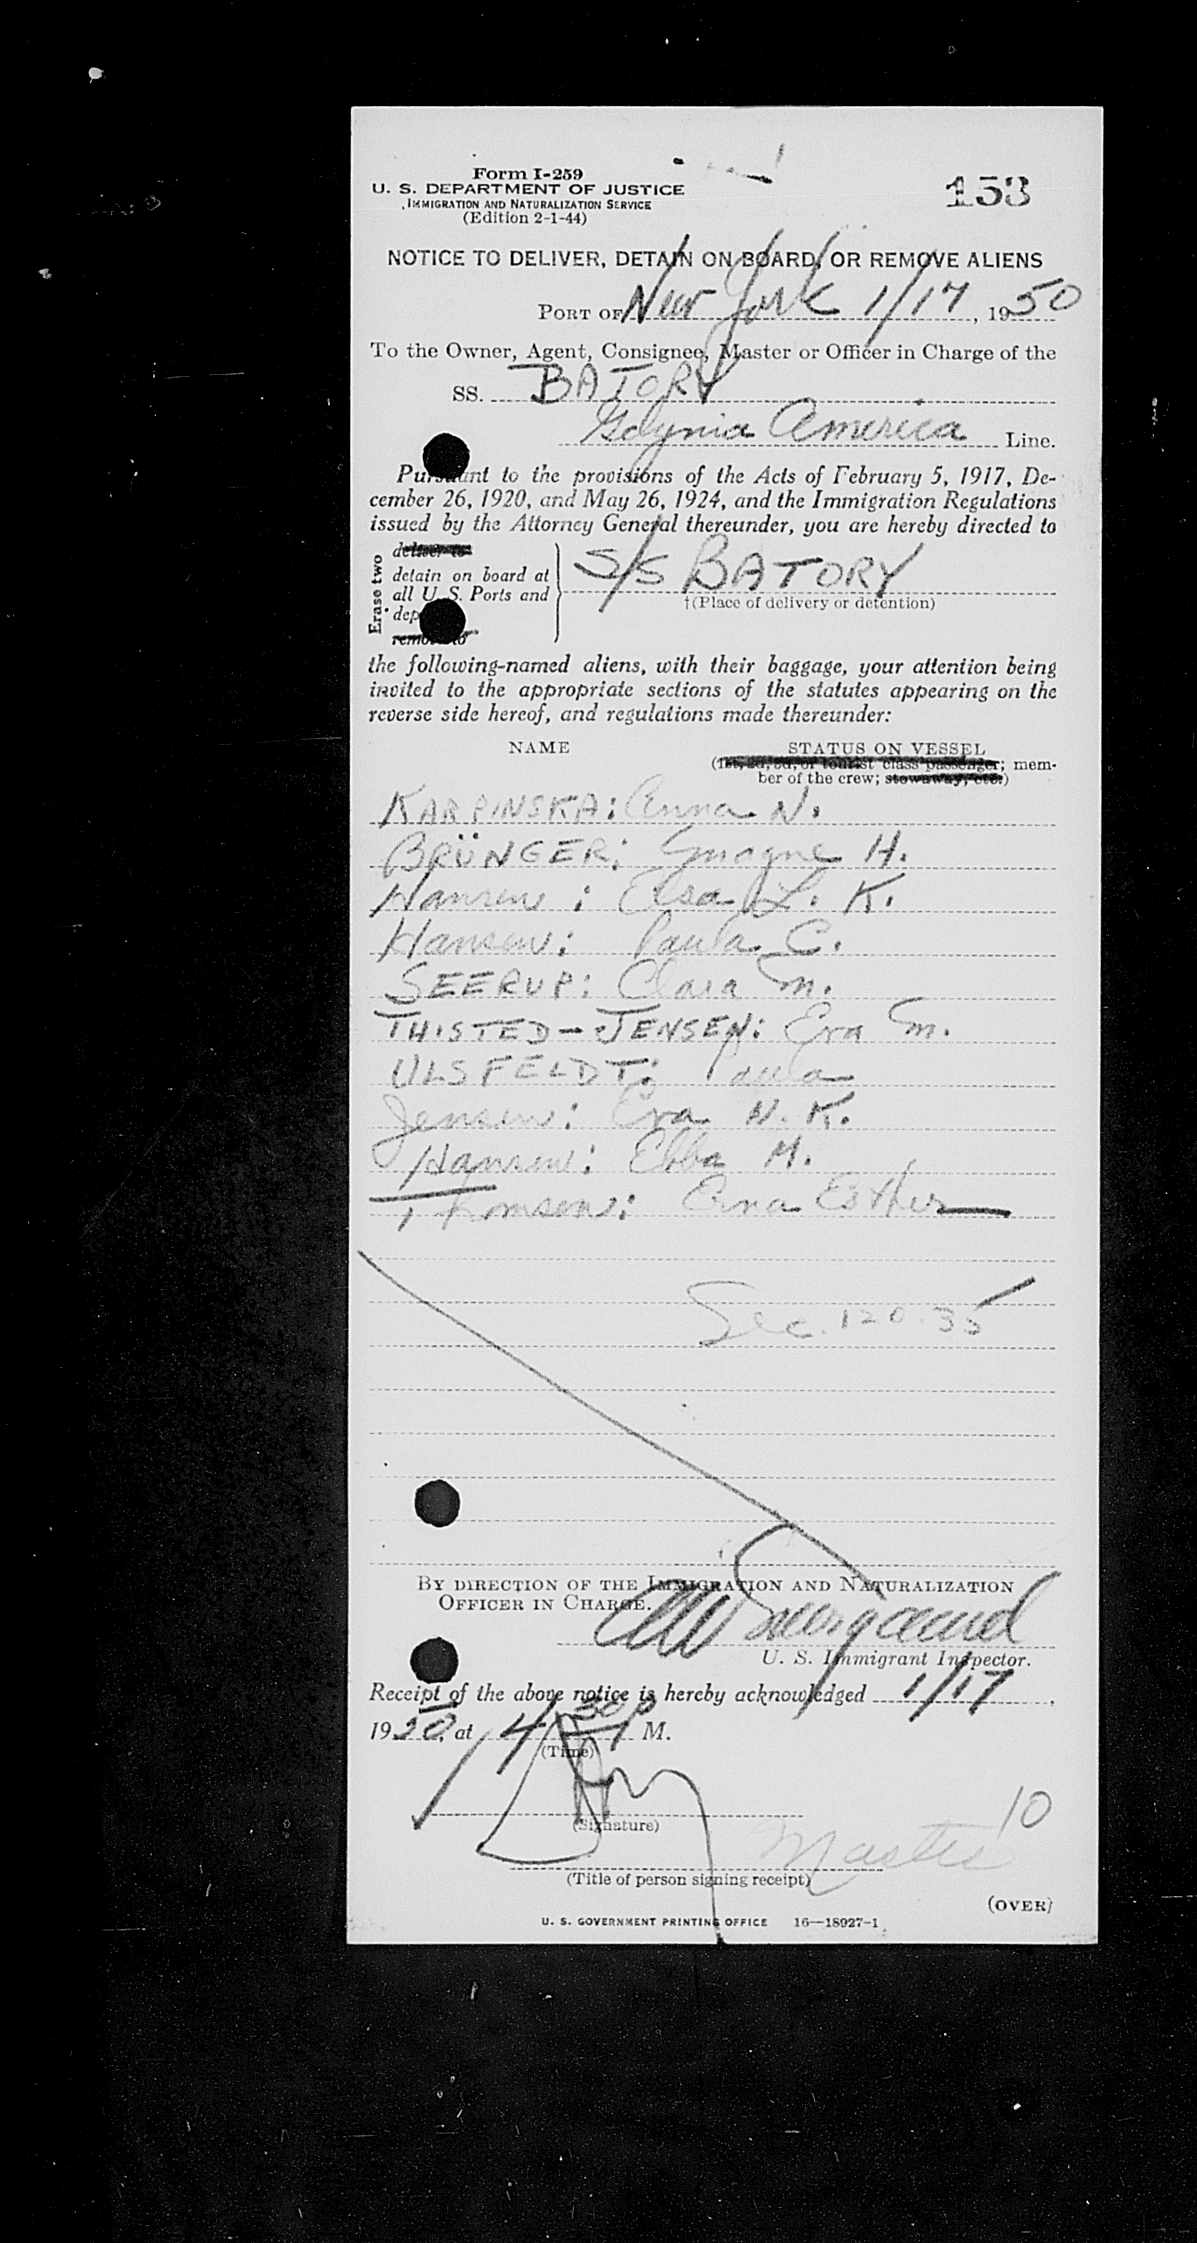 Form I-259
U. S. DEPARTMENT OF JUSTICE
IMMIGRATION AND NATURALIZATION SERVICE
(Edition 2-1-44)
153
NOTICE TO DELIVER, DETAIN ON BOARD, OR REMOVE ALIENS
PORT OF New York 1/17, 1950
To the Owner, Agent, Consignee, Master or Officer in Charge of the
SS. BATORY
Gdynia America Line.
Pursuant to the provisions of the Acts of February 5, 1917, De-
cember 26, 1920, and May 26, 1924, and the Immigration Regulations
issued by the Attorney General thereunder, you are hereby directed to
Erase two
deliver to
detain on board at
all U. S. Ports and
remove to
S/S BATORY
†(Place of delivery or detention)
the following-named aliens, with their baggage, your attention being
invited to the appropriate sections of the statutes appearing on the
reverse side hereof, and regulations made thereunder:
NAME STATUS ON VESSEL
(1st, 2d, 3d, or tourist class passenger; mem-
ber of the crew; stowaway, etc.)
KARPINSKA: Anna N.
BRÜNGER: H.
Hansen: Elsa L. K.
Hansen: Paula C.
SEERUP: Clara M.
THISTED-JENSEN: Eva M.
ULSFELDT: Paula
Jensen: Eva N. K.
Hansen: Ebba M.
Thomsen: Erna Esther
Sec. 120.35
BY DIRECTION OF THE IMMIGRATION AND NATURALIZATION
OFFICER IN CHARGE.
U. S. Immigrant Inspector.
Receipt of the above notice is hereby acknowledged 1/17,
1950, at 4 30 P M.
(Time)
(Signature)
10
Master
(Title of person signing receipt)
(OVER)
U. S. GOVERNMENT PRINTING OFFICE 16—18927-1